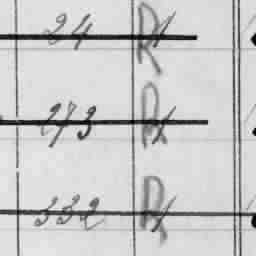 24 R
273 R
332 R